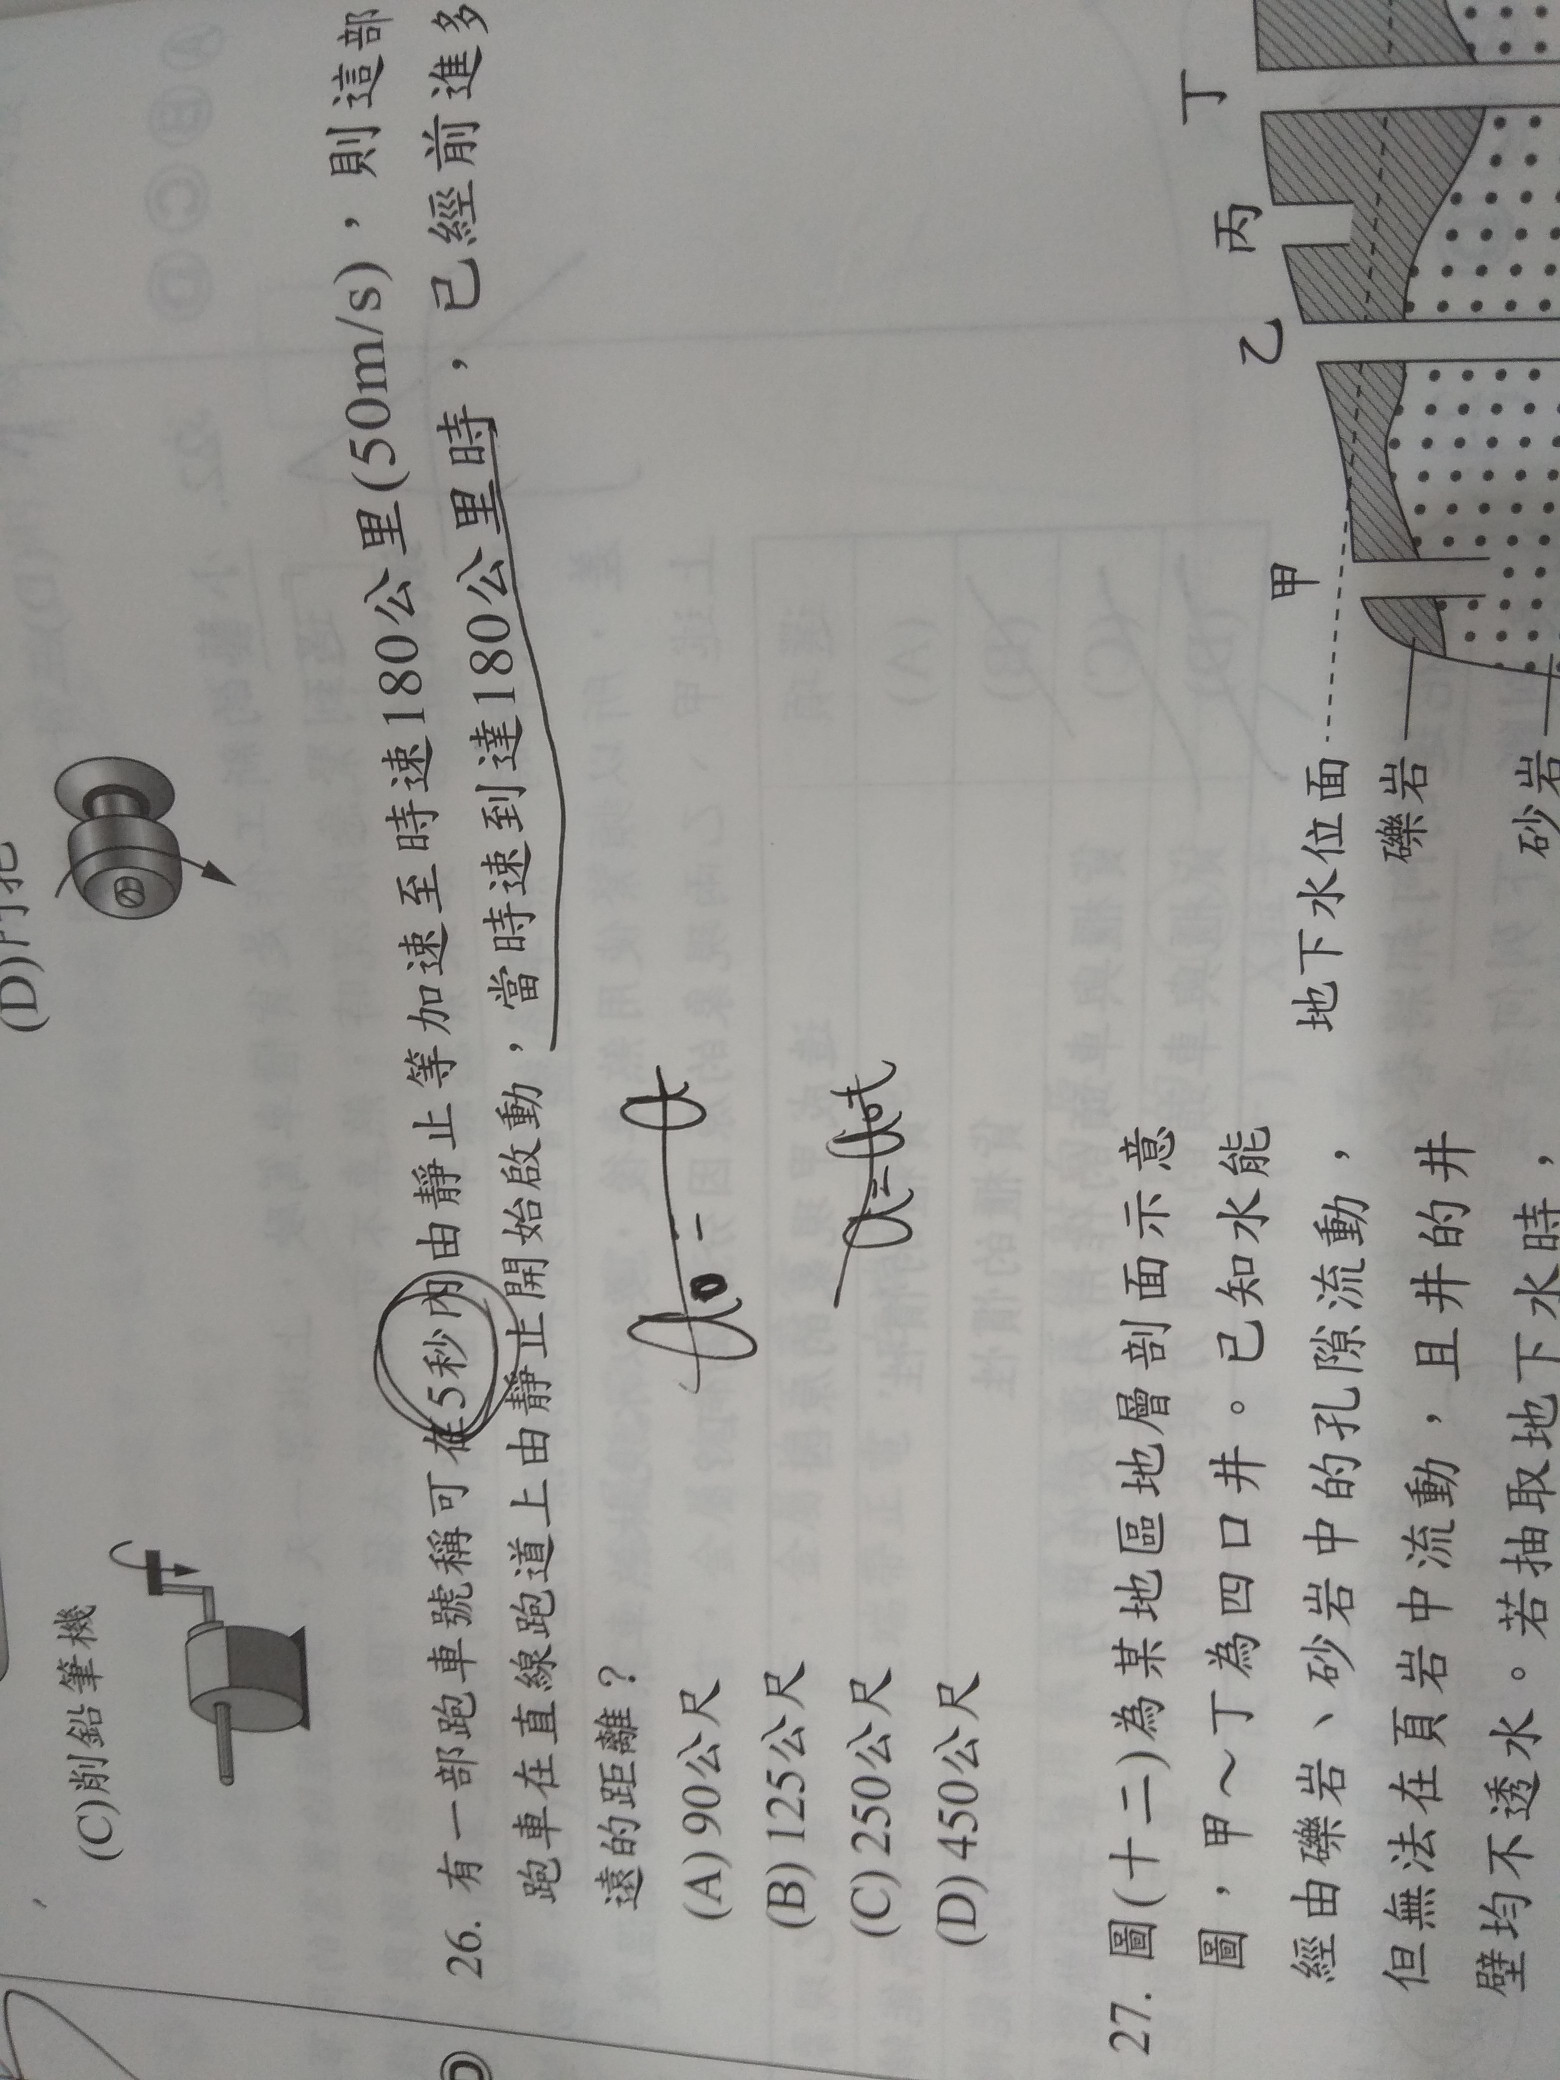 (C)削鉛筆機
(D)門把
26. 有一部跑車號稱可在5秒內由靜止等加速至時速180公里(50m/s)，則這部
跑車在直線跑道上由靜止開始啟動，當時速到達180公里時，已經前進多
遠的距離？
(A) 90公尺
(B) 125公尺
(C) 250公尺
(D) 450公尺
27. 圖(十二)為某地區地層剖面示意
圖，甲～丁為四口井。已知水能
經由礫岩、砂岩中的孔隙流動，
但無法在頁岩中流動，且井的井
壁均不透水。若抽取地下水時，
甲
乙
丙
丁
地下水位面
礫岩
砂岩